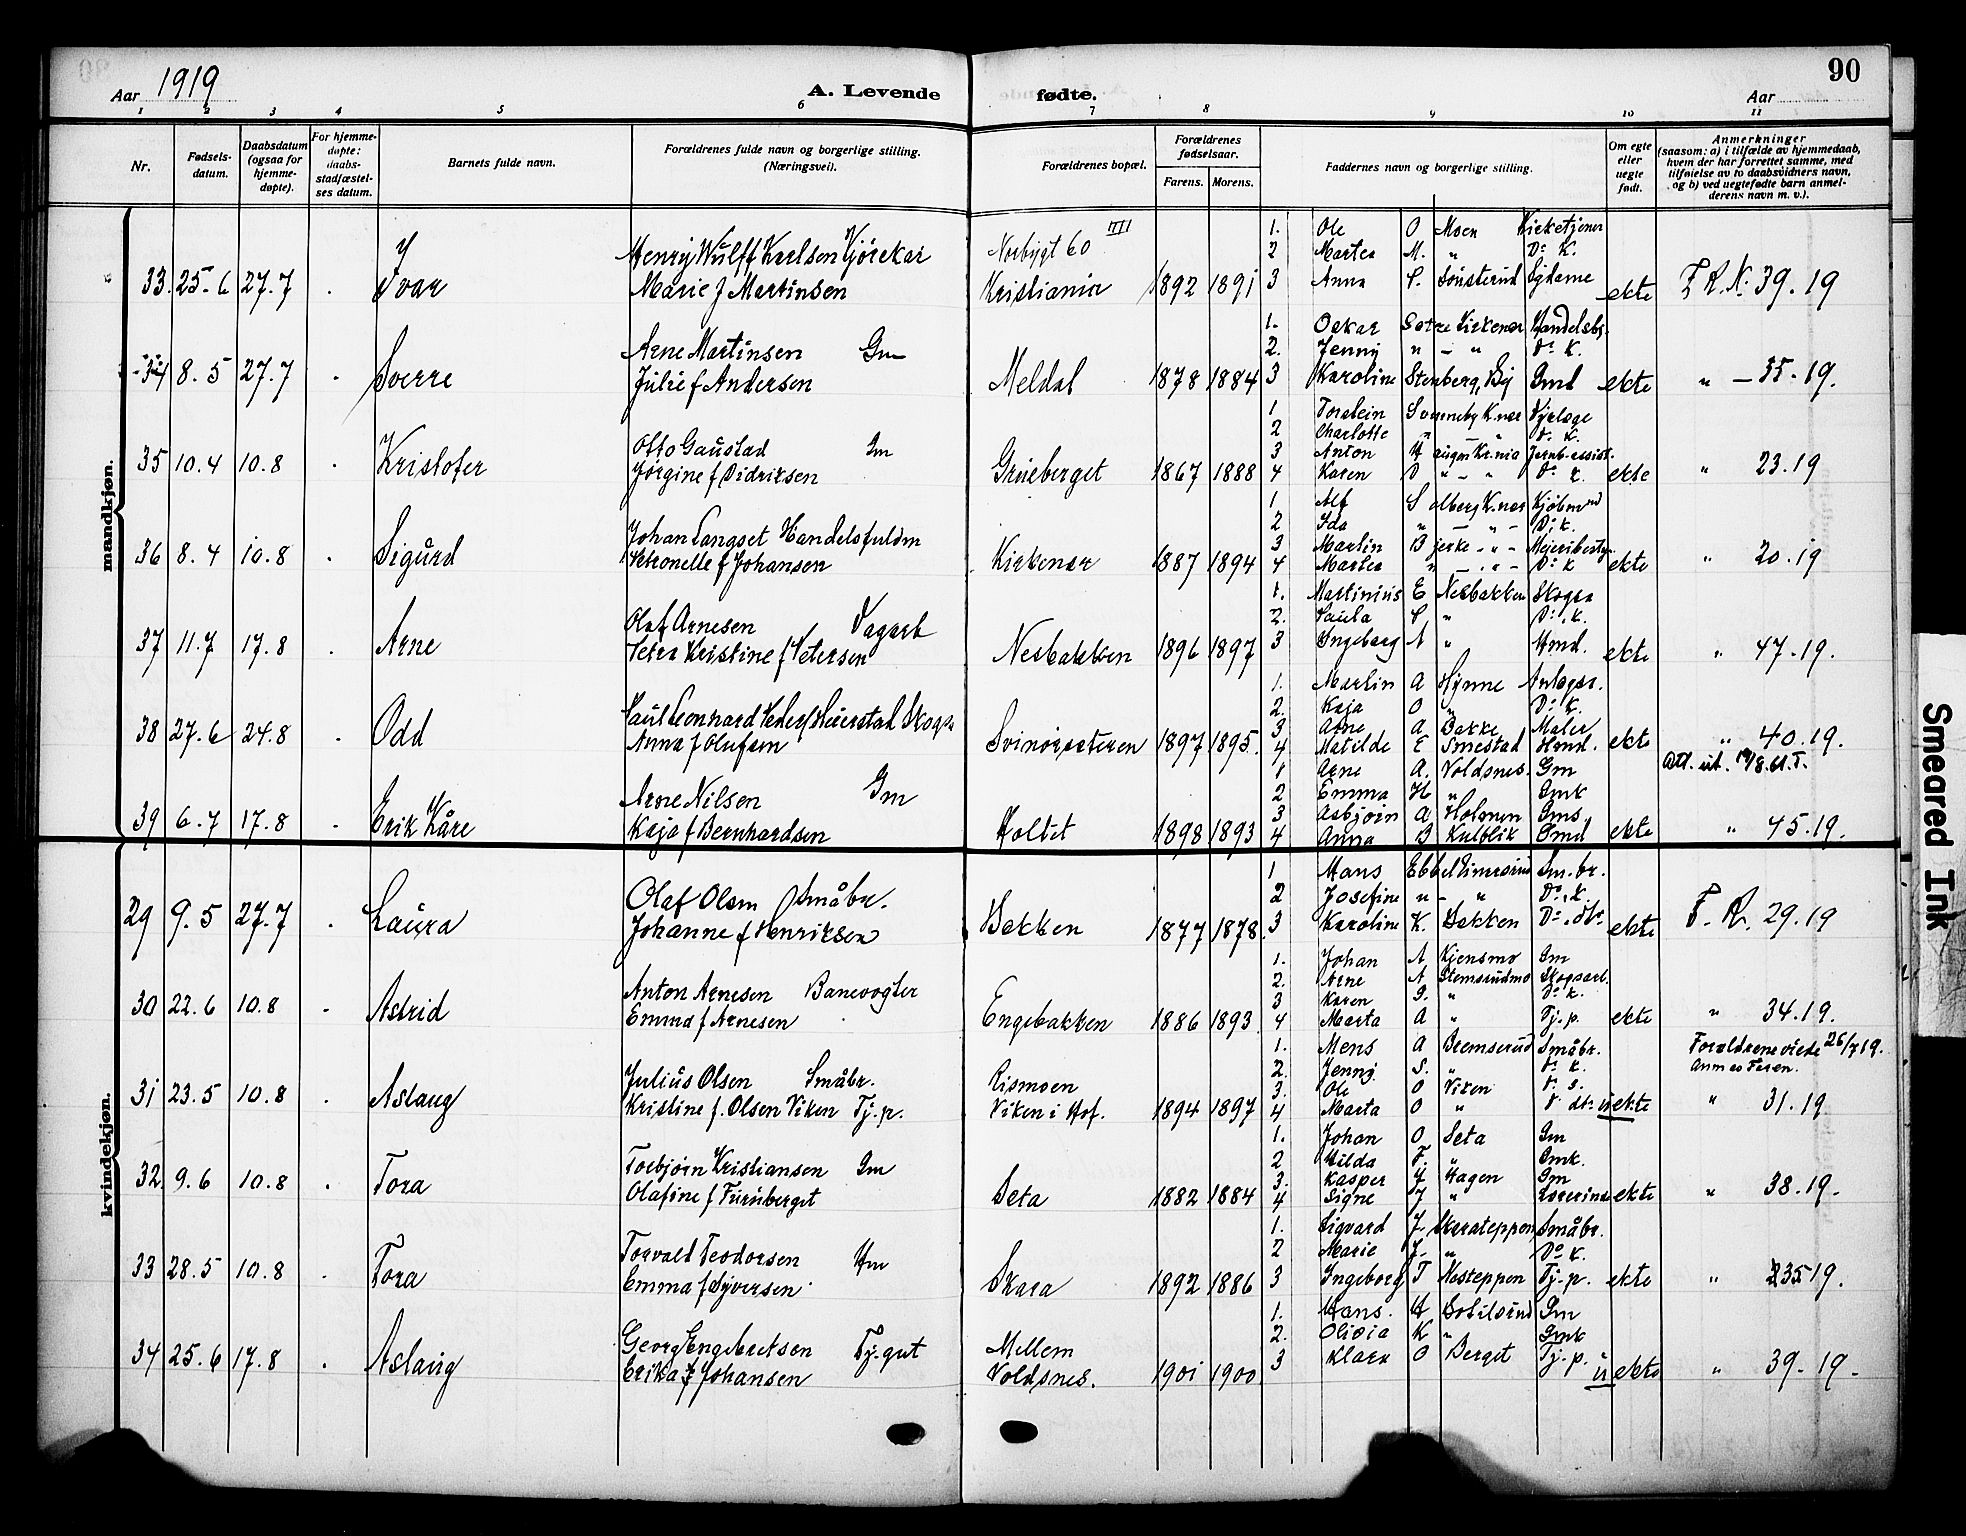 90
Aar 1919
A. Levende
fødte.
Aar
1 2 3 4 5 6 7 8 9 10 11
Nr.
Fødsels-
datum.
Daabsdatum
(ogsaa for
hjemme-
døpte).
For hjemme-
døpte:
daabs-
stadfæstel-
ses datum.
Barnets fulde navn.
Forældrenes fulde navn og borgerlige stilling.
(Næringsvei).
Forældrenes bopæl.
Forældrenes
fødselsaar.
Farens. Morens.
Faddernes navn og borgerlige stilling.
Om egte
eller
uegte
født.
Anmerkninger
(saasom: a) i tilfælde av hjemmedaab,
hvem der har forrettet samme, med
tilføielse av to daabsvidners navn,
og b) ved uegtefødte barn anmel-
derens navn m. v.).
mandkjøn.
1. Ole O Moen Kirketjener
Henry Wulff Karlsen Kjørekar Norbygt 60 2 Martea M. " Do K.
33. 25.6 27.7 Ivar Marie f Martinsen Kristiania 1892 1891 3 Anna S. Sønsterud Sydame ekte F. R. N. 39.19
1. Oskar Sætre Kirkenær Handelsb.
Arne Martinsen Gm 2. Jenny " - " Do K.
34 8.5 27.7 Sverre Julie f Andersen Meldal 1878 1884 3 Karoline Stenberg, By Gmd ekte " - 35-19.
1 Torstein Sonneby K.nær
2 Charlotte " - " Do K.
Otto Gaustad Gm 3 Anton Haugen Kr.nia Jernb-assist.
35 10.4 10.8 Kristofer Jørgine f Didriksen Grueberget 1867 1888 4 Karen ekte " 23.19
1 Alf Solberg K.nær Kjøbmnd
2 Ida " - " - Do K.
Johan Langset Handelsfuldm 3 Martin Bjerke - " - Meieribesty.
36 8.4 10.8 Sigurd Petronelle f Johansen Kirkenær 1887 1894 4 Martea " - " - Do K ekte " 20.19
1. Martinius E Nesbakken Skogsa
Olaf Arnesen Dagarb 2. Paula S " Do K.
37 11.7 17.8 Arne Petra Kristine f Petersen Nesbakken 1896 1897 3 Ingeborg A " Hmd. ekte " 47-19.
1. Martin A Hynne Anlægsr.
2. Kaja O " Do K.
Paul Leonhard Skogs 3 Arne A Bakke Maler
38 27.6 24.8 Odd Anna f Olufsen Svinørseteren 1897 1895. 4 Matilde E Smestad Hmd. ekte " 40.19.
Att. ut. 19/8.61.T.
1 Arne A. Voldsnes. Gm
Arne Nilsen Gm 2 Emma H " Gmk
3 Asbjørn A Holmen Gms
39 6.7 17.8 Erik Kåre Kaja f Bernhardsen Holtet 1898 1893 4 Anna B Kulblik Gmd ekte " 45.19.
kvindekjøn.
1 Hans Sm.br.
Olaf Olsen Småbr. 2 Josefine " - " Do K.
29 9.5 27.7 Laura Johanne f Henriksen Bakken 1877 1878. 3 Karoline K. Bakken Do. dtr. ekte F. R. 29.19
1. Johan A Kjensmo Gm
Anton Arnesen Banevogter 2. Arne A Stemsrudmo Skogsarb.
3 Karen S. " Do K.
30 22.6 10.8 Astrid Emma f Arnesen Engebakken 1886 1893. 4 Marta A " Tj.p. ekte " 34.19.
1. Mens A Bremserud Småbr. Forældrene viede 26/7 19.
Julius Olsen Småbr. Rismoen 2. Jenny. S. " Do K. Anmes Faren.
3. Ole O Viken D. s.
31 23.5 10.8 Aslaug Kristine f. Olsen Viken Tj.p. Viken i Hof. 1894 1897 4 Marta O " D dtr uekte " 31.19.
1. Johan O Seta Gm
Torbjørn Kristiansen Gm 2 Hilda F. " Gmk.
3. Kasper J Hagen Gm
32. 9.6 10.8 Tora Olafine f Furuberget Seta 1882 1884 4 Signe J " Lærerinde ekte " 38.19.
1. Sigvard J. Skarateppen Småbr.
Torvald Teodorsen Hm 2 Marie J. " Do K.
33 28.5 10.8 Tora Emma f Syversen Skara 1892 1886 3 Ingeborg T Nesteppen Tj.p. ekte " 35 19.
1. Hans. H Gotilsrud Gm
Georg Engebretsen Tj.gut Mellem 2. Olivia K " Gmk
34 25.6 17.8 Aslaug Erika f Johansen Voldsnes. 1901 1900 3 Klara O Berget Tj.p. uekte " 39-19.
Smeared Ink